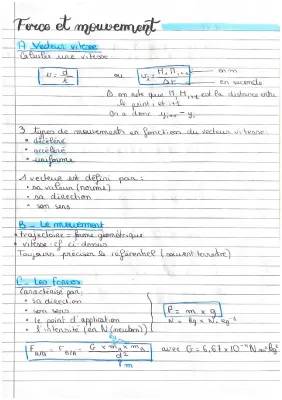 Force et mouvement
A Vecteur vitesse
Calculer une vitesse
v = d/t ou vi = Mi Mi+1 / Δt en m
en seconde
On note que Mi Mi+1 est la distance entre
le point i et i+1
On a donc yi+1 - yi
3 types de mouvements en fonction du vecteur vitesse:
• décéléré
• accéléré
• uniforme
1 vecteur est défini par:
• sa valeur (norme)
• sa direction
• son sens
B - Le mouvement
• trajectoire = forme géométrique
• vitesse cf ci dessus
Toujours préciser le référentiel (souvent terrestre)
C - Les forces
Caractérisé par:
• sa direction
• son sens
• le point d'application
• l'intensité (en N (newton))
P = m × g
N = kg × N × kg⁻¹
kg
F A/B = F B/A = G × mA × mB / d² avec G = 6,67 × 10⁻¹¹ N.m².kg⁻²
m